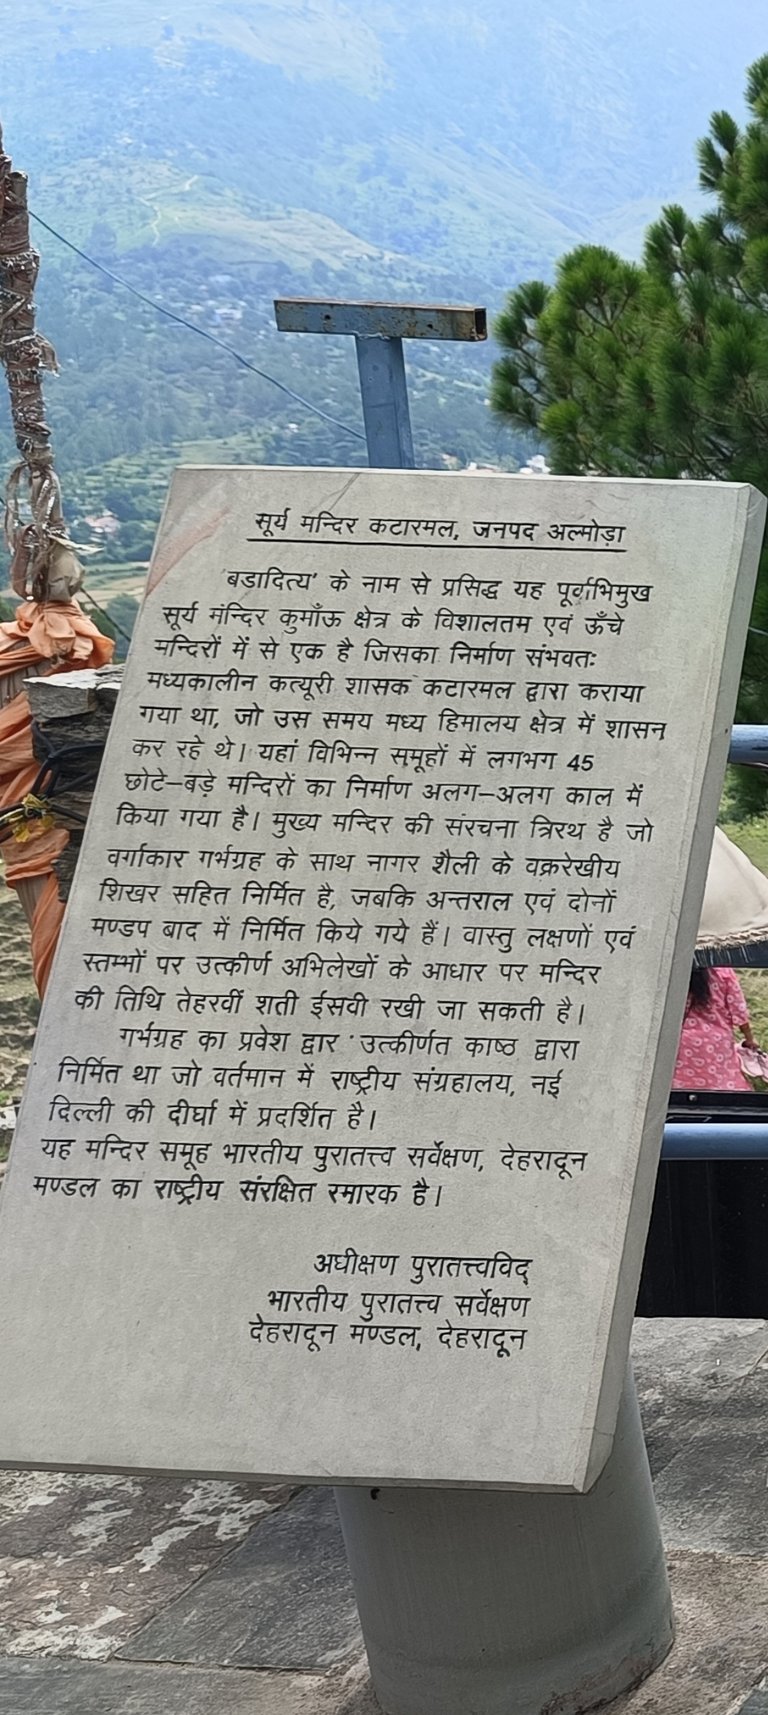 सूर्य मन्दिर कटारमल, जनपद अल्मोड़ा
'बडादित्य' के नाम से प्रसिद्ध यह पूर्वाभिमुख
सूर्य मंन्दिर कुमाँऊ क्षेत्र के विशालतम एवं ऊँचे
मन्दिरों में से एक है जिसका निर्माण संभवतः
मध्यकालीन कत्यूरी शासक कटारमल द्वारा कराया
गया था, जो उस समय मध्य हिमालय क्षेत्र में शासन
कर रहे थे। यहां विभिन्न समूहों में लगभग 45
छोटे–बड़े मन्दिरों का निर्माण अलग–अलग काल में
किया गया है। मुख्य मन्दिर की संरचना त्रिरथ है जो
वर्गाकार गर्भग्रह के साथ नागर शैली के वक्ररेखीय
शिखर सहित निर्मित है, जबकि अन्तराल एवं दोनों
मण्डप बाद में निर्मित किये गये हैं। वास्तु लक्षणों एवं
स्तम्भों पर उत्कीर्ण अभिलेखों के आधार पर मन्दिर
की तिथि तेहरवीं शती ईसवी रखी जा सकती है।
गर्भग्रह का प्रवेश द्वार उत्कीर्णत काष्ठ द्वारा
निर्मित था जो वर्तमान में राष्ट्रीय संग्रहालय, नई
दिल्ली की दीर्घा में प्रदर्शित है।
यह मन्दिर समूह भारतीय पुरातत्त्व सर्वेक्षण, देहरादून
मण्डल का राष्ट्रीय संरक्षित स्मारक है।
अधीक्षण पुरातत्त्वविद्
भारतीय पुरातत्त्व सर्वेक्षण
देहरादून मण्डल, देहरादून